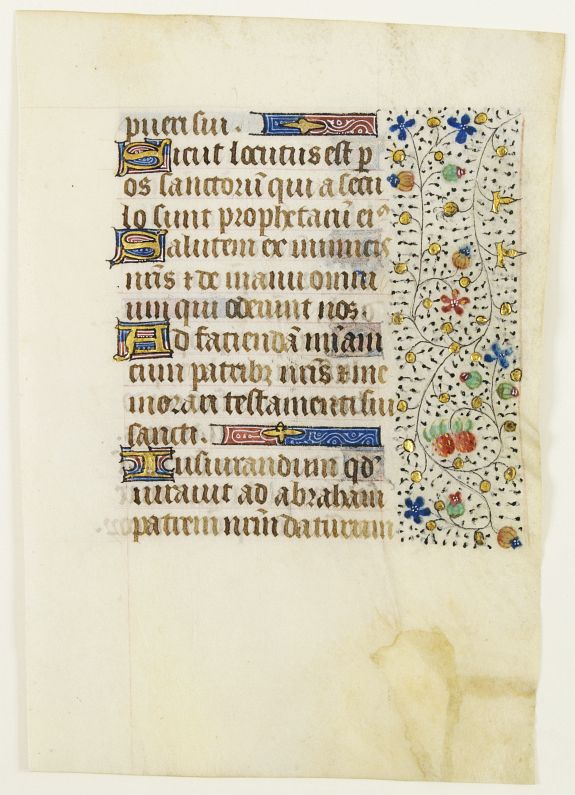 pueri sui.
Sicut locutus est p̄
os sanctorū qui a secu
lo sunt prophetarū ei⁹
Salutem ex inimicis
nr̄is ⁊ de manu omniu
um qui oderunt nos.
Ad faciendā mīam
cum patribꝫ nr̄is ⁊ me
morari testamenti sui
sancti.
Iusiurandum qd̄
iuravit ad abraham
patrem nr̄m daturum